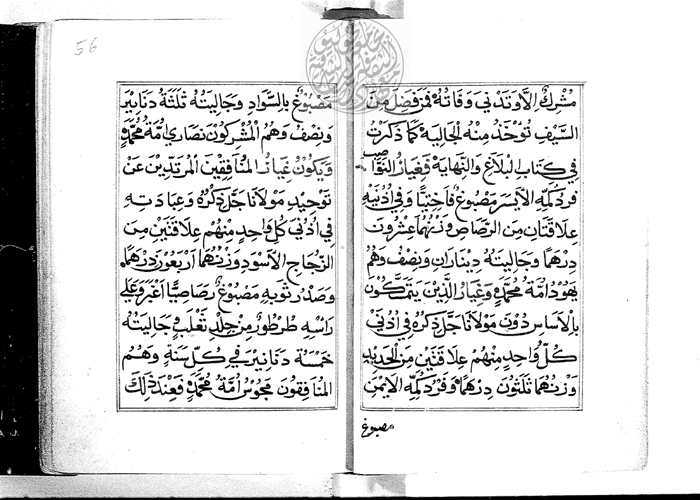 56
مشرك الا وتدني وفاته فمن فضل من
السيف توخذ منه الجالية كما ذكرت
في كتاب البلاغ والنهاية فغيار النواصب
فرد كمه الايسر مصبوغ فاختيا وفي اذنيه
علاقتان من الرصاص وزنهما عشرون
درهما وجاليته ديناران ونصف وهم
يهود امة محمد وغيار الذين يتمسكون
بالاساس دون مولانا جل ذكره في اذني
كل واحد منهم علاقتين من الحديد
وزنهما ثلثون درهما وفرد كمه الايمن
مصبوغ
مصبوغ بالسواد وجاليته ثلثة دنانير
ونصف وهم المشركون نصارى امة محمد
ويكون غيار المنافقين المرتدين عن
توحيد مولانا جل ذكره وعبادته
في اذني كل واحد منهم علاقتين من
الزجاج الاسود وزنهما اربعون درهما
وصدر ثوبه مصبوغ رصاصيا اغبر وعلى
راسه طرطور من جلد ثعلب وجاليته
خمسة دنانير في كل سنة وهم
المنافقون مجوس امة محمد فعند ذلك